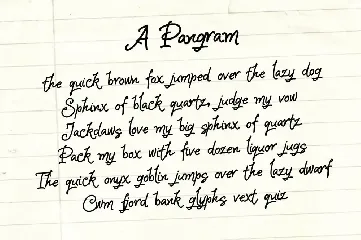 A Pangram
the quick brown fox jumped over the lazy dog
Sphinx of black quartz, judge my vow
Jackdaws love my big sphinx of quartz
Pack my box with five dozen liquor jugs
The quick onyx goblin jumps over the lazy dwarf
Cwm fjord bank glyphs vext quiz